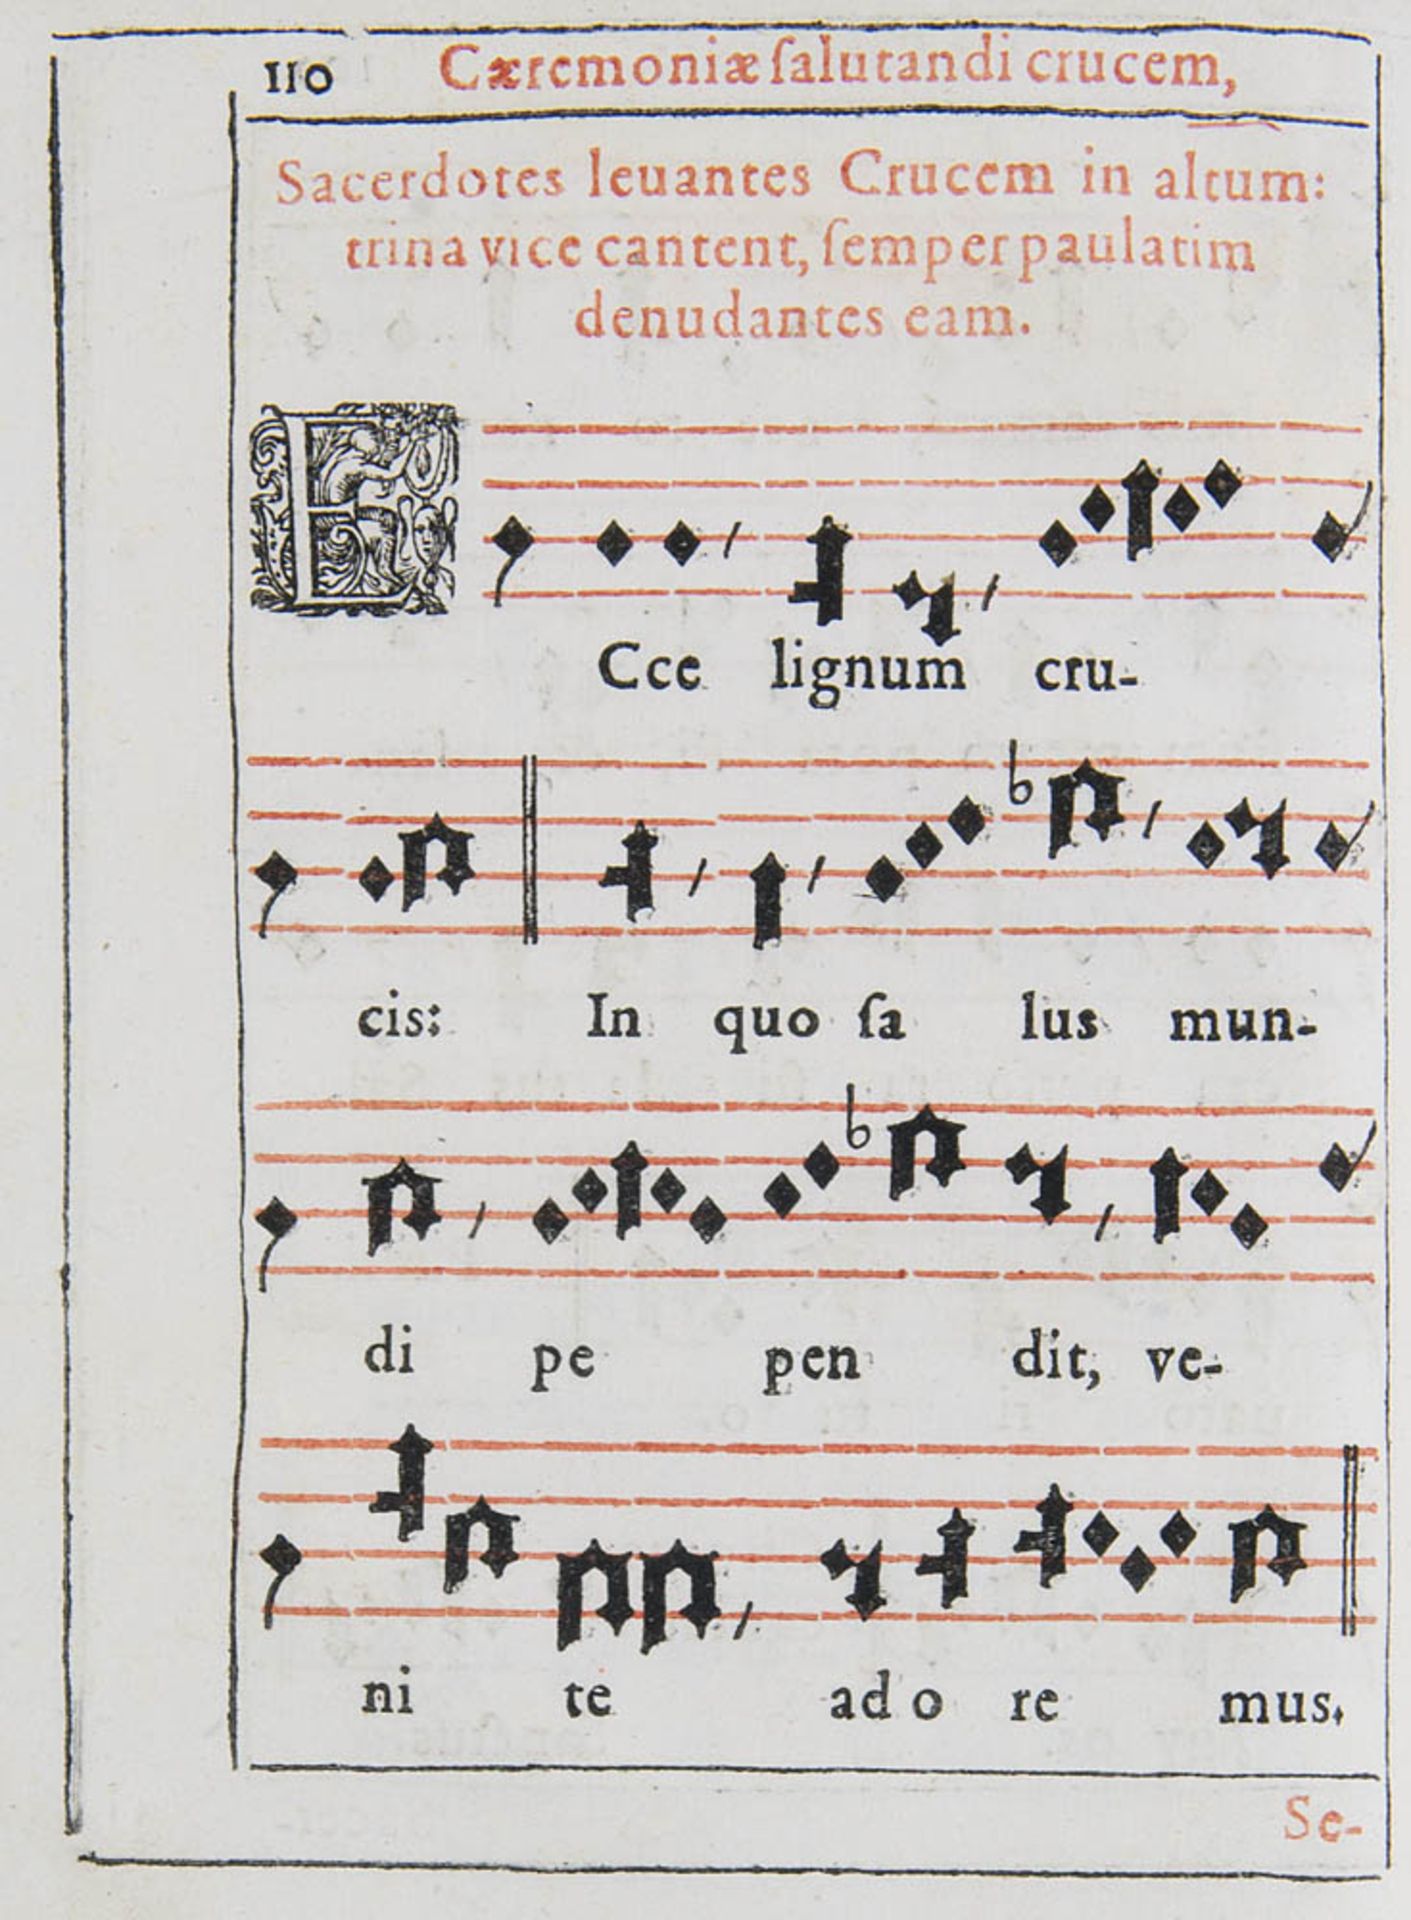 110 Cæremoniæ ſalutandi crucem,
Sacerdotes leuantes Crucem in altum:
trina vice cantent, ſemper paulatim
denudantes eam.
ECce lignum cru-
cis: In quo ſa lus mun-
di pe pen dit, ve-
ni te ad o re mus.
Se-